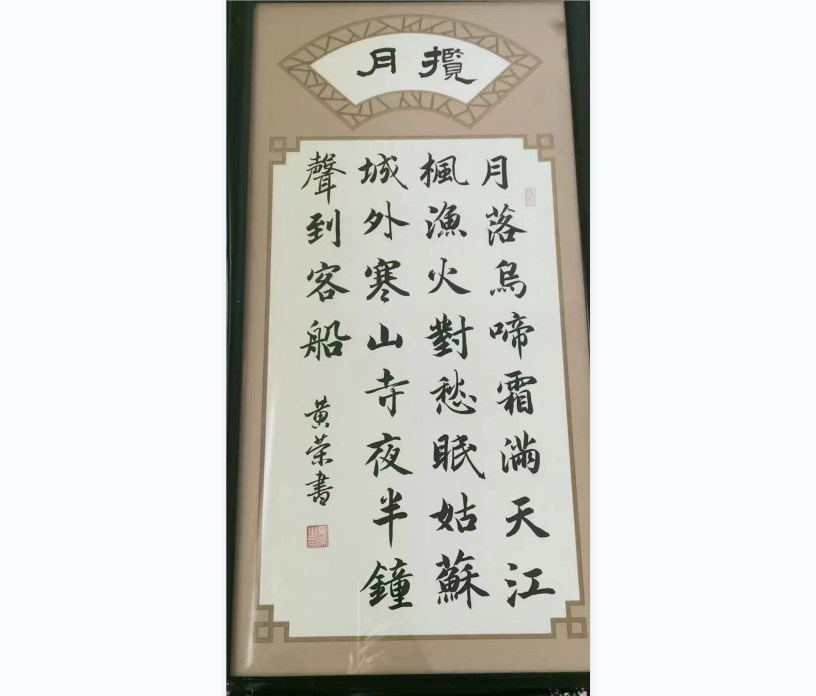 攬月
月落烏啼霜滿天江
楓漁火對愁眠姑蘇
城外寒山寺夜半鐘
聲到客船
黄荣書